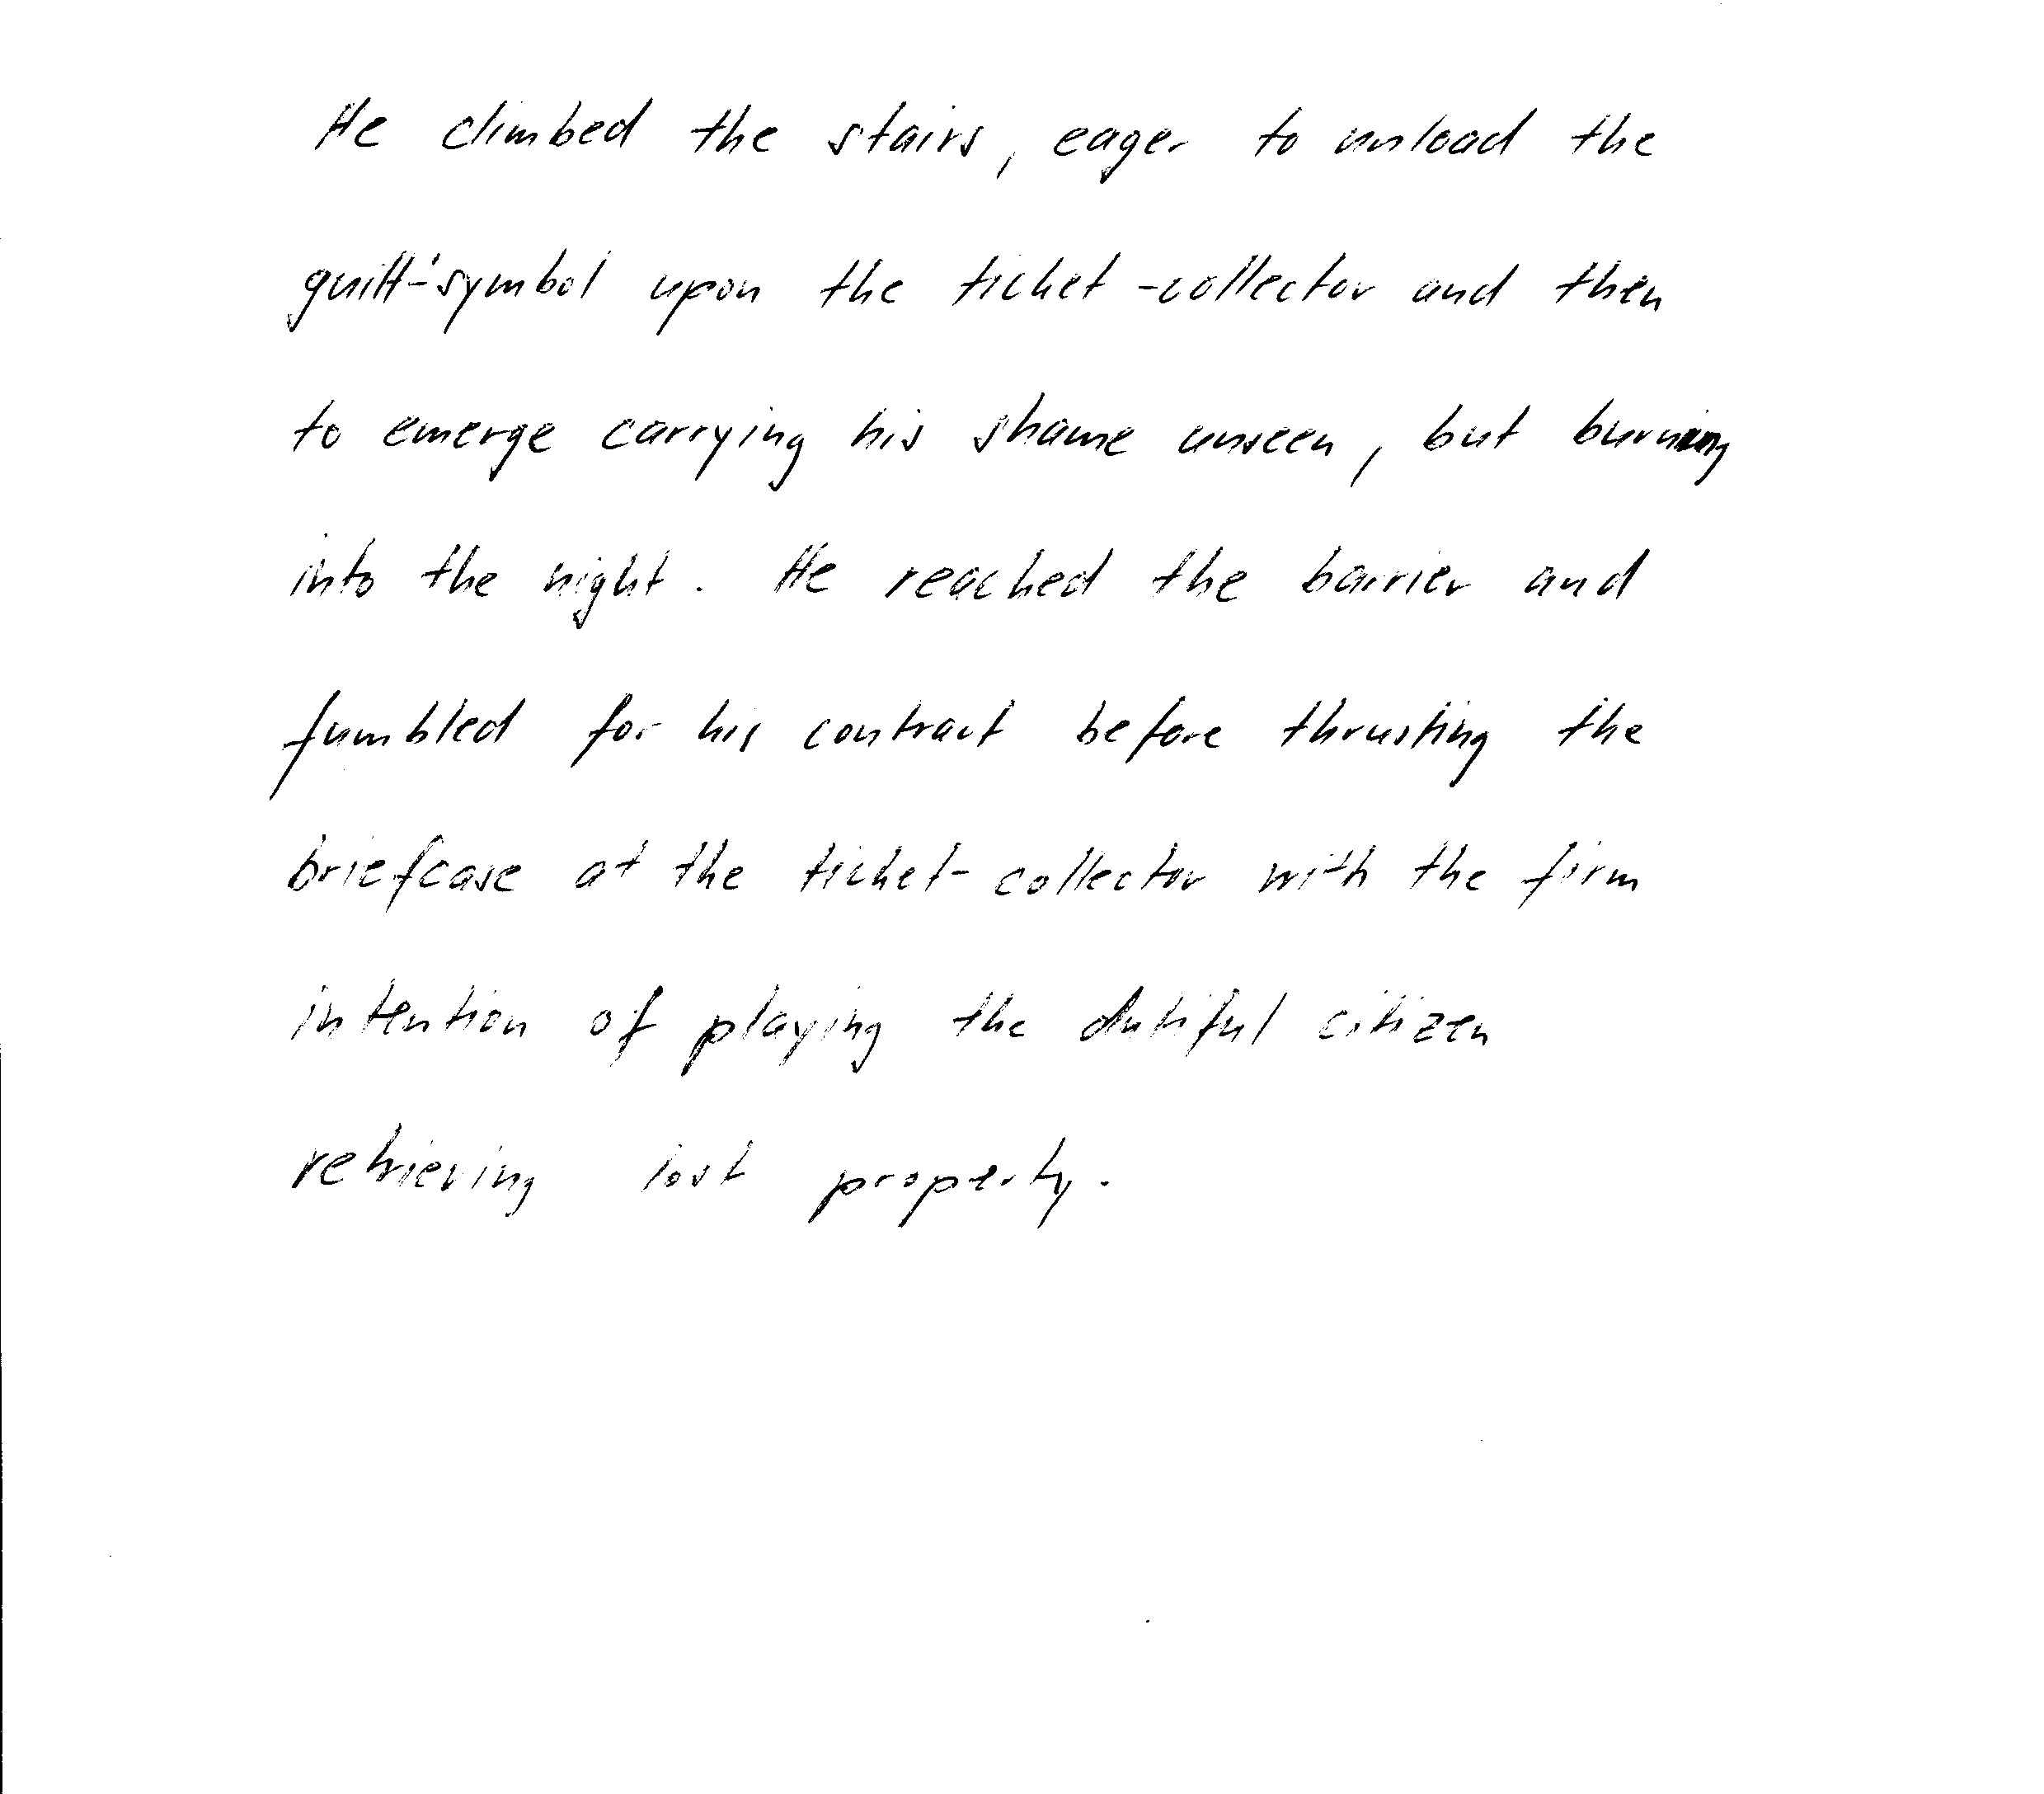 He climbed the stairs, eager to unload the
guilt-'symbol upon the ticket-collector and then
to emerge carrying his shame unseen, but burning
into the night. He reached the barrier and
fumbled for his contract before thrusting the
briefcase at the ticket-collector with the firm
intention of playing the dutiful citizen
retrieving lost property.